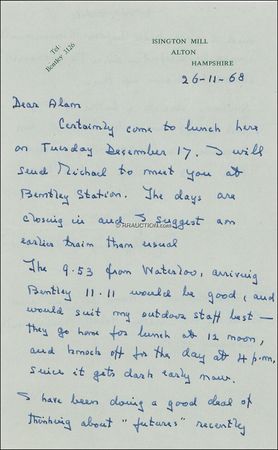 Tel
Bentley 3126
ISINGTON MILL
ALTON
HAMPSHIRE
26-11-68
Dear Alam
Certainly come to lunch here
on Tuesday December 17. I will
send Michael to meet you at
Bentley Station. The days are
closing in and I suggest an
earlier train than usual
RRAUCTION.COM
The 9.53 from Waterloo, arriving
Bentley 11.11 would be good, and
would suit my outdoor staff best –
they go home for lunch at 12 noon,
and knock off for the day at 4 p.m.
since it gets dark early now.
I have been doing a good deal of
thinking about "futures" recently